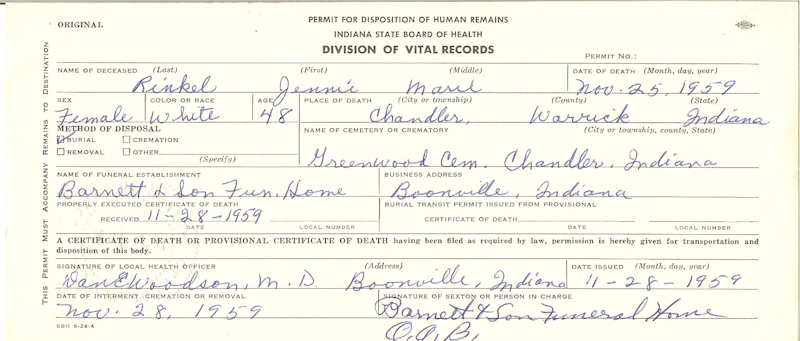 ORIGINAL
PERMIT FOR DISPOSITION OF HUMAN REMAINS
INDIANA STATE BOARD OF HEALTH
DIVISION OF VITAL RECORDS
PERMIT NO.:
THIS PERMIT MUST ACCOMPANY REMAINS TO DESTINATION
NAME OF DECEASED (Last) (First) (Middle) DATE OF DEATH (Month, day, year)
Rinkel Jennie Marie Nov. 25, 1959
SEX COLOR OR RACE AGE PLACE OF DEATH (City or township) (County) (State)
Female White 48 Chandler, Warrick Indiana
METHOD OF DISPOSAL NAME OF CEMETERY OR CREMATORY (City or township, county, State)
BURIAL CREMATION
REMOVAL OTHER
(Specify)
Greenwood Cem. Chandler, Indiana
NAME OF FUNERAL ESTABLISHMENT BUSINESS ADDRESS
Barnett & Son Fun. Home Boonville, Indiana
PROPERLY EXECUTED CERTIFICATE OF DEATH BURIAL TRANSIT PERMIT ISSUED FROM PROVISIONAL
RECEIVED 11-28-1959 CERTIFICATE OF DEATH
DATE LOCAL NUMBER DATE LOCAL NUMBER
A CERTIFICATE OF DEATH OR PROVISIONAL CERTIFICATE OF DEATH having been filed as required by law, permission is hereby given for transportation and
disposition of this body.
SIGNATURE OF LOCAL HEALTH OFFICER (Address) DATE ISSUED (Month, day, year)
Dan E Woodson, M.D. Boonville, Indiana 11-28-1959
DATE OF INTERMENT, CREMATION OR REMOVAL SIGNATURE OF SEXTON OR PERSON IN CHARGE
Nov. 28, 1959 Barnett & Son Funeral Home
SBH 6-24-4 O.A.B.